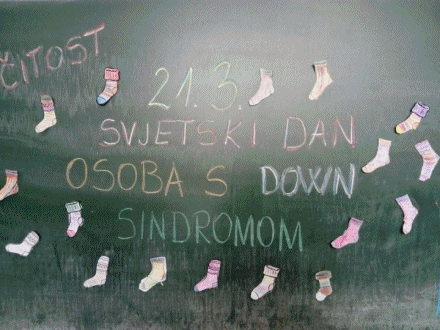 ČITOST
21.3.
SVJETSKI DAN
OSOBA S DOWN
SINDROMOM